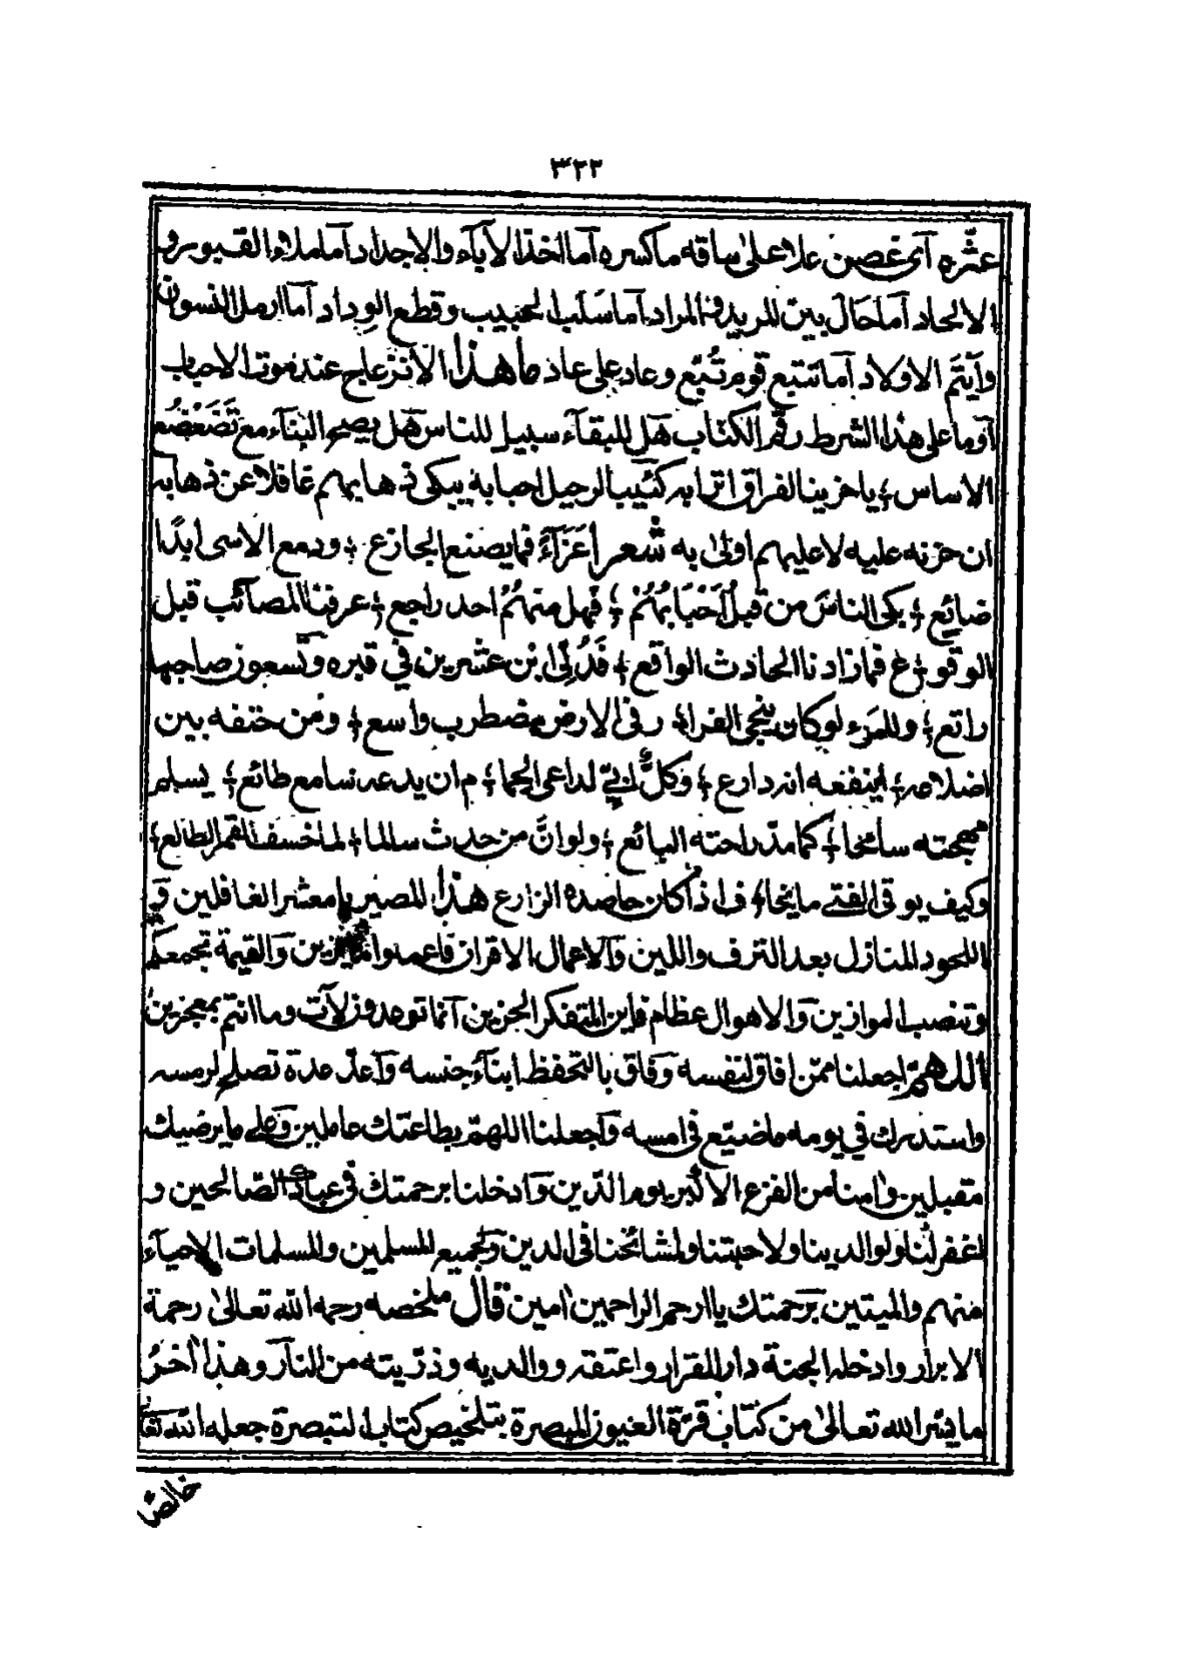 ٣٢٢
عثّره آى غصن علا على ساقه ما كسره آما اخذ الأباء والاجداد آما ملاء القبور و
الالحاد آما حال بين المريد والمراد آما سَلَب الحبيب وقطع الوداد آما ارمل النسوان
وآيتَم الاولاد آما تتبع قوم تُبّع وعاد على عاد ما هذا الانزعاج عند موت الاحباب
آو ما على هذا الشرط رقم الكتاب هَل للبقاء سبيل للناس هل يصح البناء مع تَضَعْضُع
الاساس ؛ يا حزينا لفراق اترابه كئيبا لرحيل احبابه يبكى ذهابهم غافلا عن ذهابه
ان حزنه عليه لا عليهم اولى به شعر اَعَزَاءً فما يصنع الجازع ؛ ودمع الاسى ابدًا
ضايع ؛ بكى الناسَ من قبلُ اَحْبَابُهُمْ ؛ فهل منهُمُ احد راجع ؛ عرفنا المصائب قبل
الوقو ؛ ع فما زادنا الحادث الواقع ؛ فَدُلِّى ابن عشرين فى قبره وتسعون صاحبها
راتع ؛ وللمَرء لو كان ينجى الفرا ؛ ر فى الارض مضطرب واسع ؛ ومن حتفه بين
اضلاعه ؛ اينفعه انه دارع ؛ وكلُّ ابىّ لداعى الحما ؛ م ان يدعه سامع طائع ؛ يسلم
مهجته سامحا ؛ كما مدّ راحته البائع ؛ ولو انّ من حدث سالما ؛ لما خسف القمر الطالع ؛
وكيف يوقى الفتى ما يخا ؛ ف اذا كان حاصده الزارع هذا المصير يا معشر الغافلين و
اللحود المنازل بعد الترف واللين وآلاعمال الاقران فاعمدوا وآلقيمة تجمعكم
وتنصب الموازين وآلاهوال عظام فاين المتفكر الحزين آنما توعدون لآت وما انتم بمعجزين
اللهم اجعلنا ممن افاق لنفسه وفاق بالتحفظ ابناءَ جنسه وآعدّ عدة تصلح لرمسه
واستدرك فى يومه ما ضيّع فى امسه وآجعلنا اللهمّ بطاعتك عاملين وعلى ما يرضيك
مقبلين وامنا من الفزع الاكبر يوم الدّين وآدخلنا برحمتك فى عبادك الصّالحين و
اغفر لنا ولوالدينا ولاحبتنا ولمشائخنا فى الدين ولجميع المسلمين والمسلمات الاحياء
منهم والميتين برحمتك يا ارحم الراحمين امين قال ملخصه رحمه الله تعالى رحمة
الابرار وادخله الجنة دار القرار واعتقه ووالديه وذرّيته من النار وهذا اٰخرُ
ما يسّر الله تعالى من كتاب قرّة العيون المبصرة بتلخيص كتاب التبصرة جعله الله تعالى
خالصًا